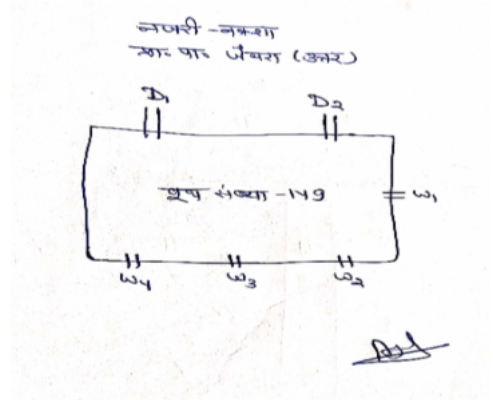 नजरी-नक्शा
प्रा॰ पा॰ जैथरा (उत्तर)
D1
D2
बूथ संख्या-149
W1
W4
W3
W2